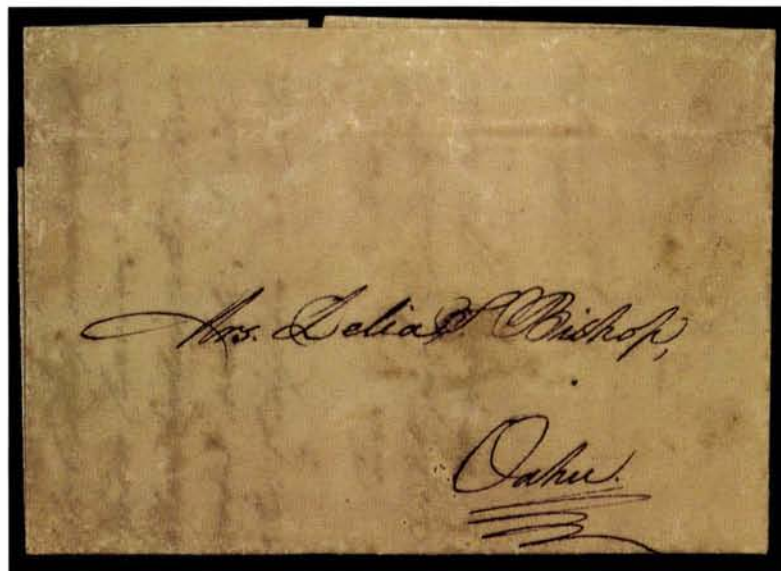 Mrs. Delia S. Bishop,
Oahu.